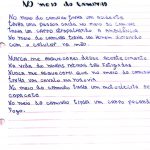 No meio do caminho
No meio do caminho tinha um acidente
tinha uma pessoa caída no meio do caminho
tinha um carro atropelando a ambulância
No meio do caminho tinha um homem dirigindo
com o celular na mão.
Nunca me esquecerei desse acontecimento
na vida de minhas retinas tão fatigadas
Nunca me esquecerei que no meio do caminho
tinha um cavalo na rodovia
No meio do caminho tinha um motociclista de
capacete
No meio do caminho tinha um carro pegando
fogo.